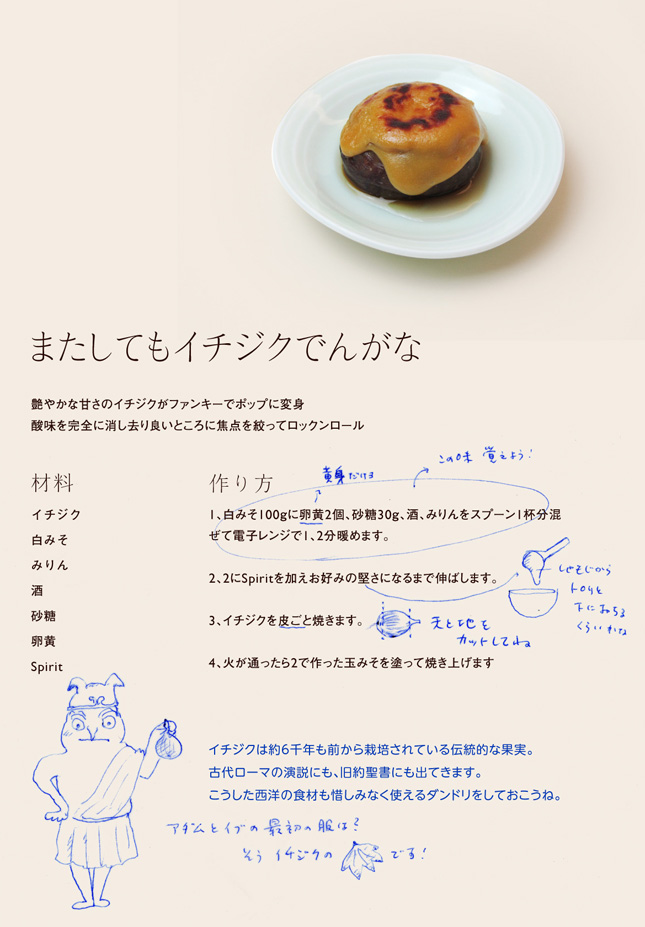 またしてもイチジクでんがな
艶やかな甘さのイチジクがファンキーでポップに変身
酸味を完全に消し去り良いところに焦点を絞ってロックンロール
材料
イチジク
白みそ
みりん
酒
砂糖
卵黄
Spirit
作り方
黄身だけヨ
この味 覚えよう!
1、白みそ100gに卵黄2個、砂糖30g、酒、みりんをスプーン1杯分混
ぜて電子レンジで1、2分暖めます。
2、2にSpiritを加えお好みの堅さになるまで伸ばします。
しゃもじから
トロりと
下におちる
くらいかな
3、イチジクを皮ごと焼きます。
天と地を
カットしてね
4、火が通ったら2で作った玉みそを塗って焼き上げます
イチジクは約6千年も前から栽培されている伝統的な果実。
古代ローマの演説にも、旧約聖書にも出てきます。
こうした西洋の食材も惜しみなく使えるダンドリをしておこうね。
アダムとイブの最初の服は?
そう イチジクの です!